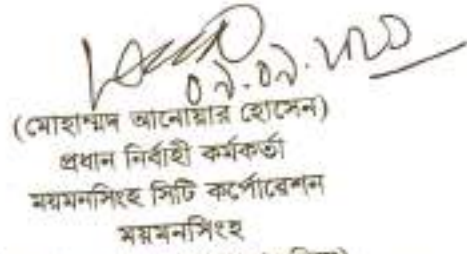 ০৯.০৯.২০২০
(মোহাম্মদ আনোয়ার হোসেন)
প্রধান নির্বাহী কর্মকর্তা
ময়মনসিংহ সিটি কর্পোরেশন
ময়মনসিংহ